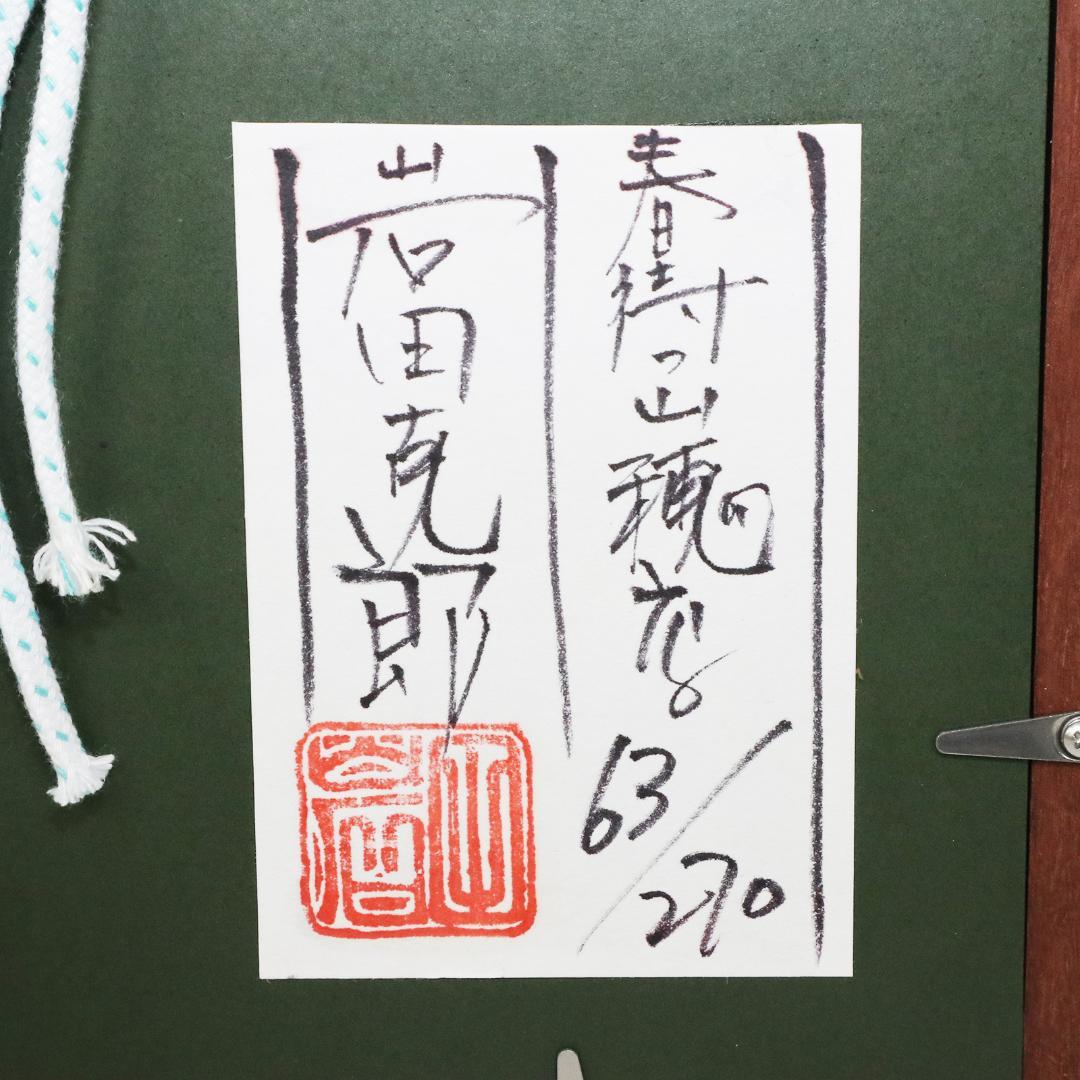 春待つ山穂高
63/270
岩田克郎